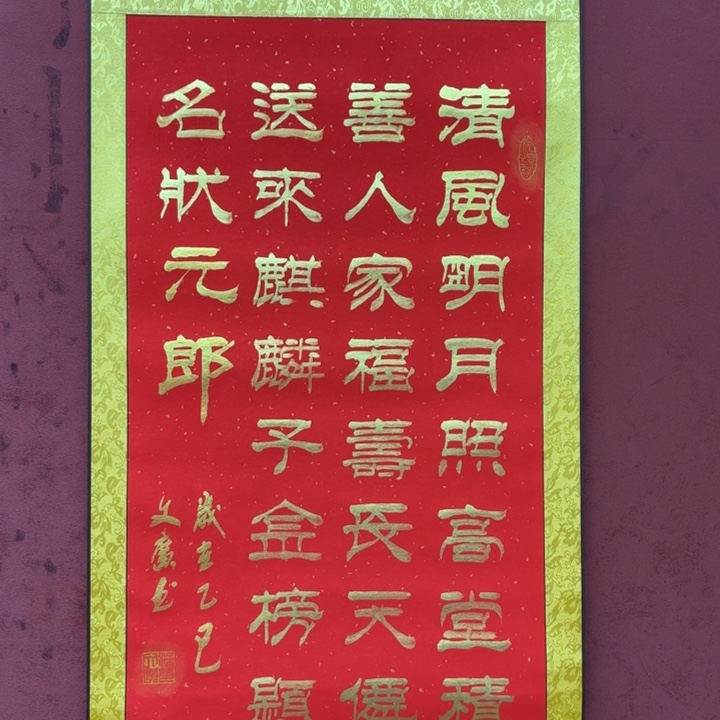 清風明月照高堂積
善人家福壽長天僊
送來麒麟子金榜題
名狀元郎
歲在乙巳
文廣書